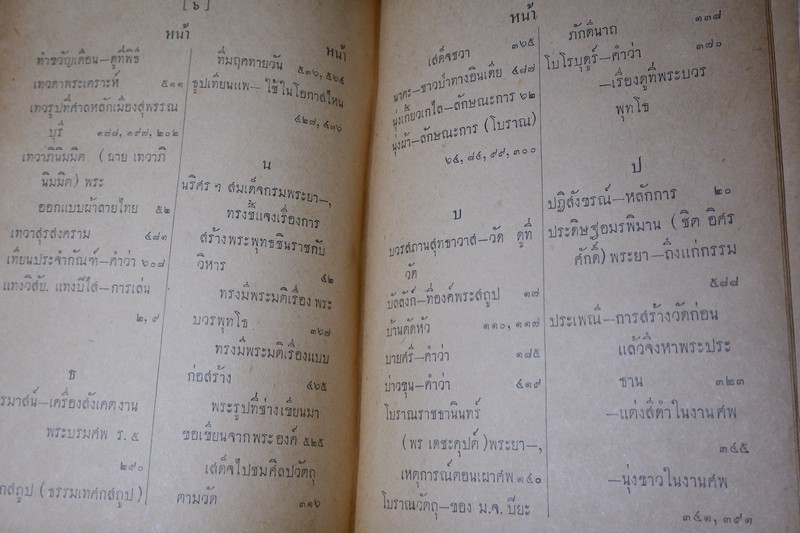 [ ๖ ]
หน้า
ทำขวัญเดือน—ดูที่พิธี
เทวดาพระเคราะห์ ๕๑๑
เทวรูปที่ศาลหลักเมืองสุพรรณ
บุรี ๑๘๘, ๑๙๘, ๒๐๒
เทวาภินิมมิต (ฉาย เทวาภิ
นิมมิต) พระ
ออกแบบผ้าลายไทย ๕๒
เทวาสุรสงคราม ๔๘๑
เทียนประจำกัณฑ์—คำว่า ๖๐๘
แทงวิสัย, แทงบีไส—การเล่น
๒, ๙
ธ
รมาสน์—เครื่องสังเคดงาน
พระบรมศพ ร. ๕
๒๙๐
กสถูป (ธรรมเทศกสถูป)
หน้า
ที่มฤคทายวัน ๕๓๖, ๕๖๔
ธูปเทียนแพ—ใช้ในโอกาสไหน
๔๒๘, ๔๓๖
น
นริศร ฯ สมเด็จกรมพระยา—,
ทรงชี้แจงเรื่องการ
สร้างพระพุทธชินราชกับ
วิหาร ๔๒
ทรงมีพระมติเรื่อง พระ
บวรพุทโธ ๓๖๗
ทรงมีพระมติเรื่องแบบ
ก่อสร้าง ๔๖๕
พระรูปที่ช่างเขียนมา
ขอเขียนจากพระองค์ ๕๒๕
เสด็จไปชมศิลปวัตถุ
ตามวัด ๓๑๖
หน้า
เสด็จชวา ๓๖๕
นาคะ—ชาวป่าทางอินเดีย ๔๘๗
นุ่งเกี้ยวเกไล—ลักษณะการ ๖๒
นุ่งผ้า—ลักษณะการ (โบราณ)
๖๔, ๘๔, ๙๙, ๓๐๐
บ
บวรสถานสุทธาวาส—วัด ดูที่
วัด
บัลลังก์—ที่องค์พระสถูป ๑๗
บ้านตัดหัว ๑๑๐, ๑๑๗
บายศรี—คำว่า ๑๘๕
บ่าวขุน—คำว่า ๔๑๙
โบราณราชธานินทร์
(พร เดชะคุปต์) พระยา—,
เหตุการณ์ตอนเผาศพ ๑๔๐
โบราณวัตถุ—ของ ม.จ. ปิยะ
ภักดีนาถ ๑๓๗
โบโรบุดูร์—คำว่า ๓๗๐
—เรื่องดูที่พระบวร
พุทโธ
ป
ปฏิสังขรณ์—หลักการ ๒๐
ประดิษฐอมรพิมาน (ชิต อิศร
ศักดิ์) พระยา—ถึงแก่กรรม
๕๘๘
ประเพณี—การสร้างวัดก่อน
แล้วจึงหาพระประ
ธาน ๓๒๓
—แต่งสีดำในงานศพ
๓๔๕
—นุ่งขาวในงานศพ
๓๔๑, ๓๙๑